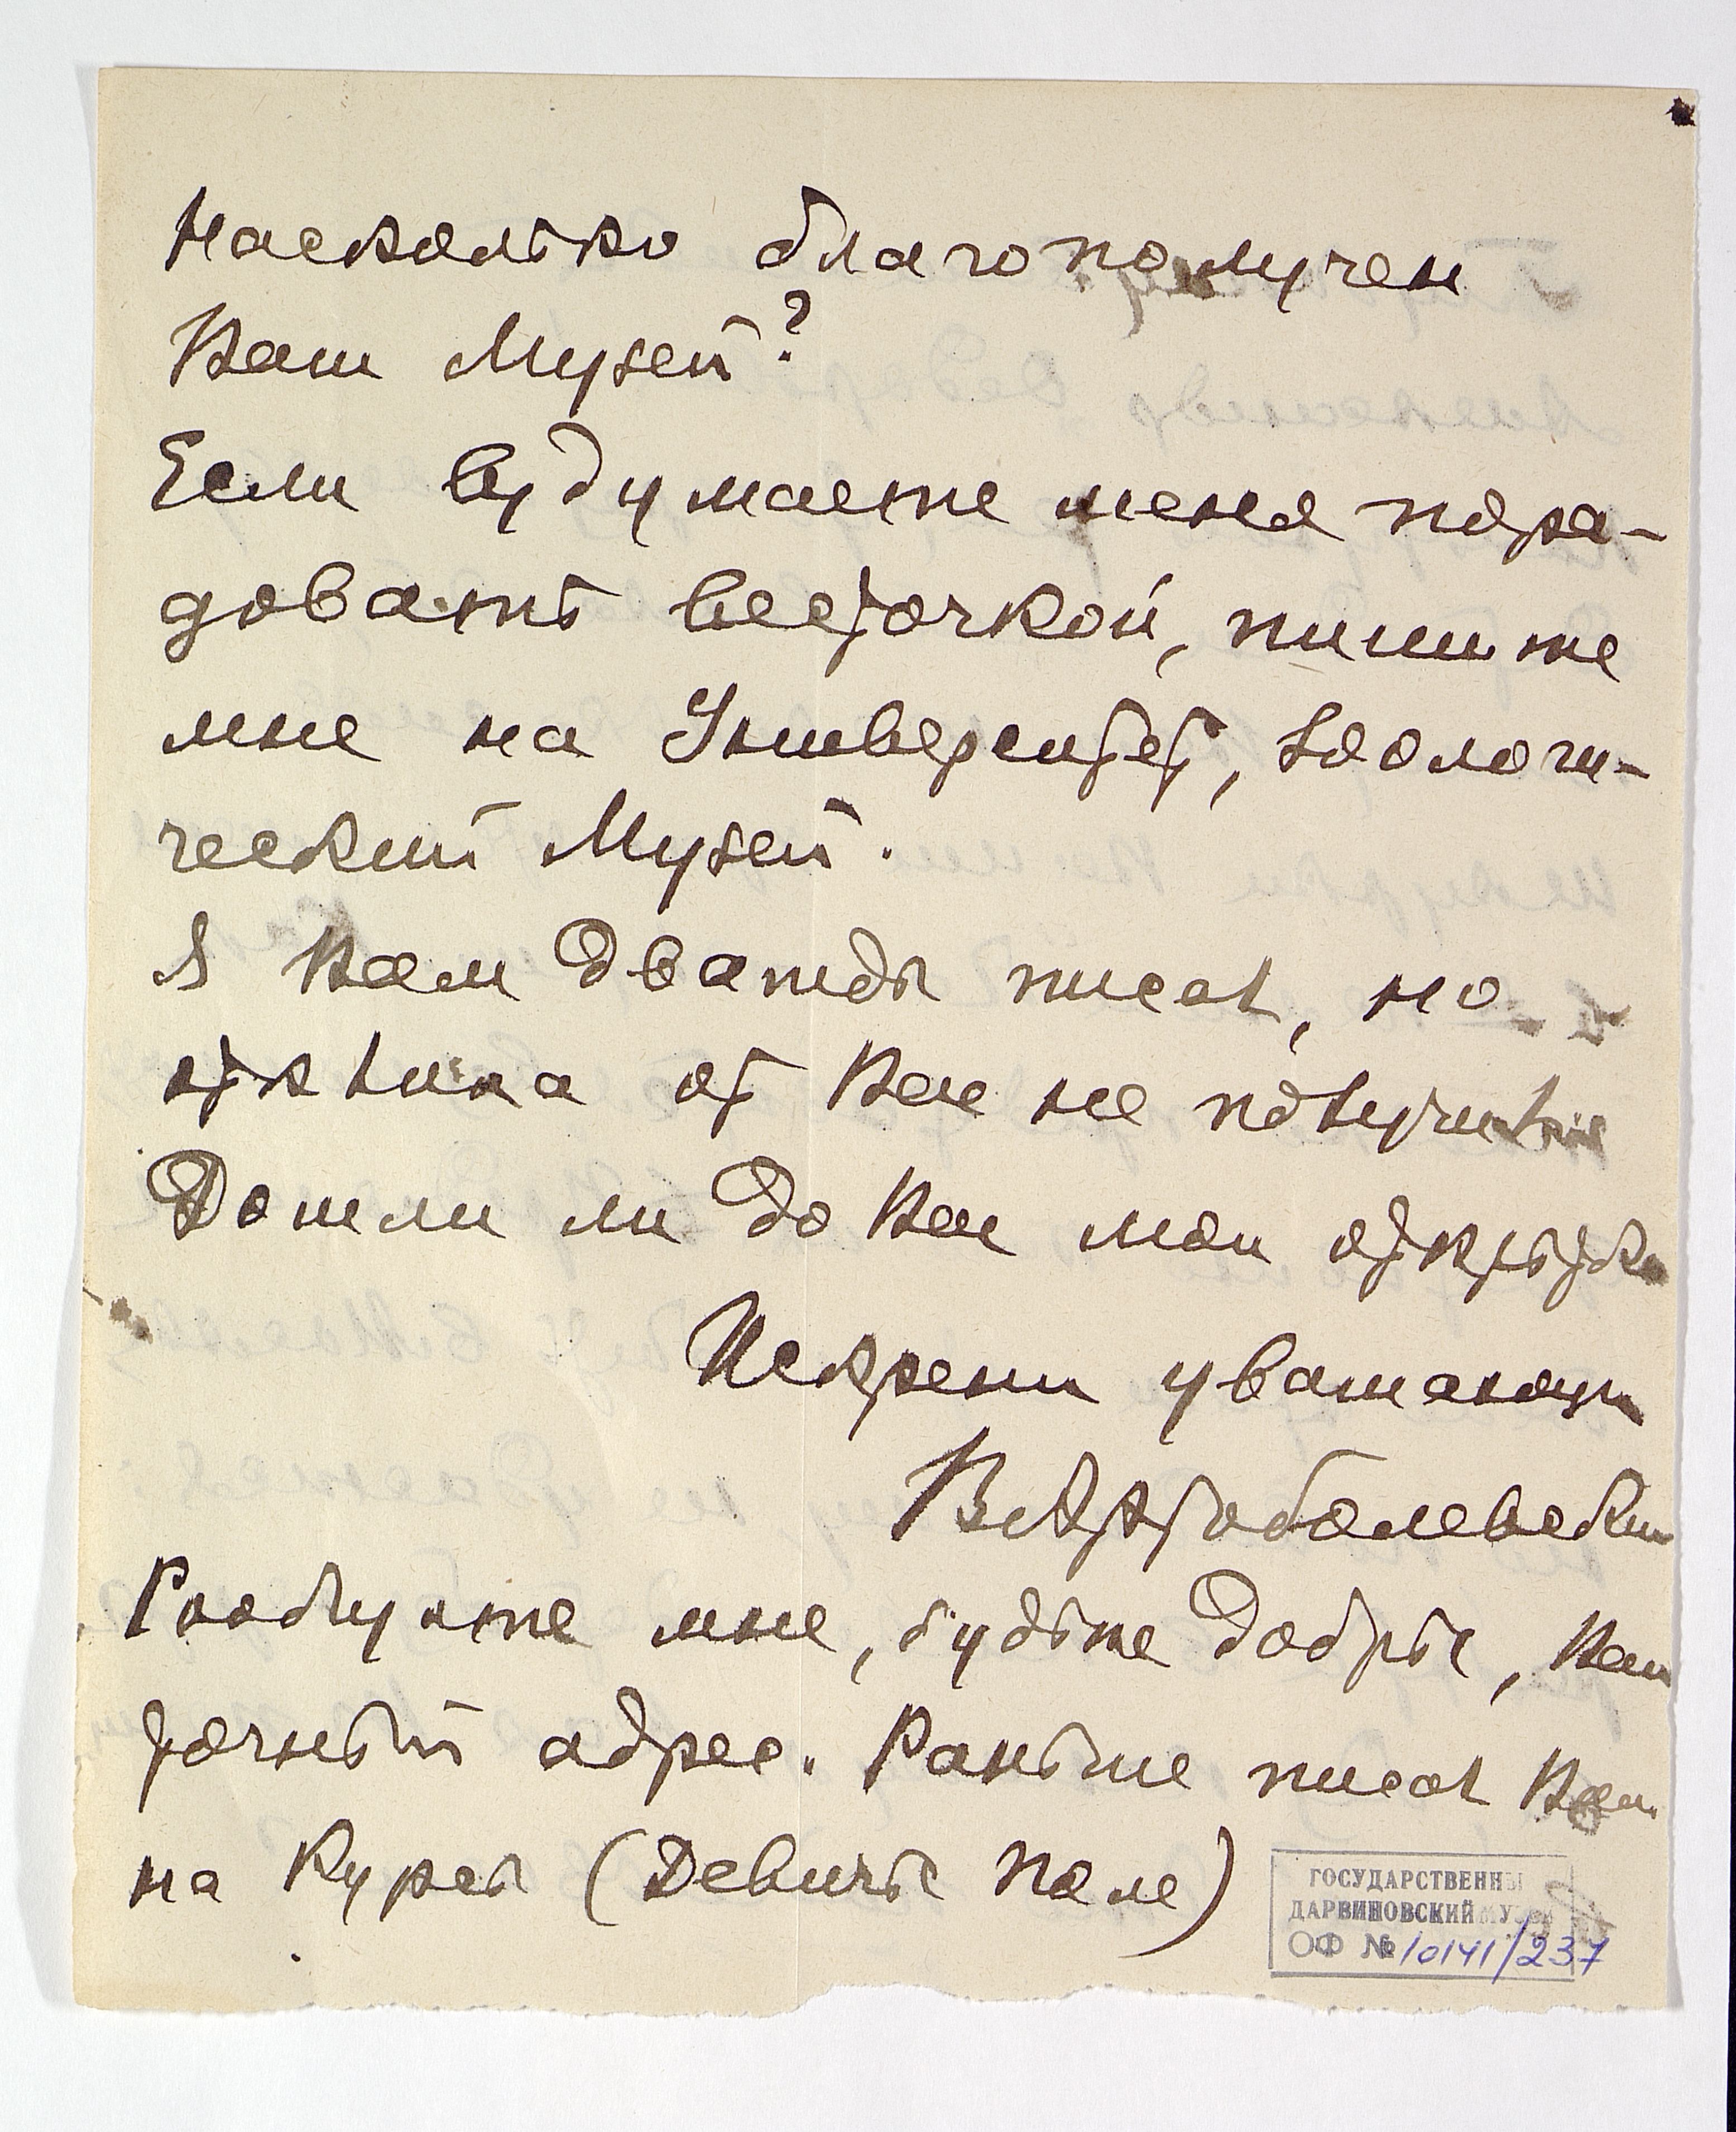 Насколько благополучен
Ваш Музей?
Если вздумаете меня пора-
довать весточкой, пишите
мне на Университет, Зоологи-
ческий Музей.
Я Вам дважды писал, но
отклика от Вас не получил
Дошли ли до Вас мои открытки
Искренн уважающий
Сообщите мне, будьте добры, Ваш
точный адрес. Раньше писал Вам
на Курсы (Девичье Поле)
ГОСУДАРСТВЕННЫ
ДАРВИНОВСКИЙ МУЗЕЙ
ОФ № 10141/237